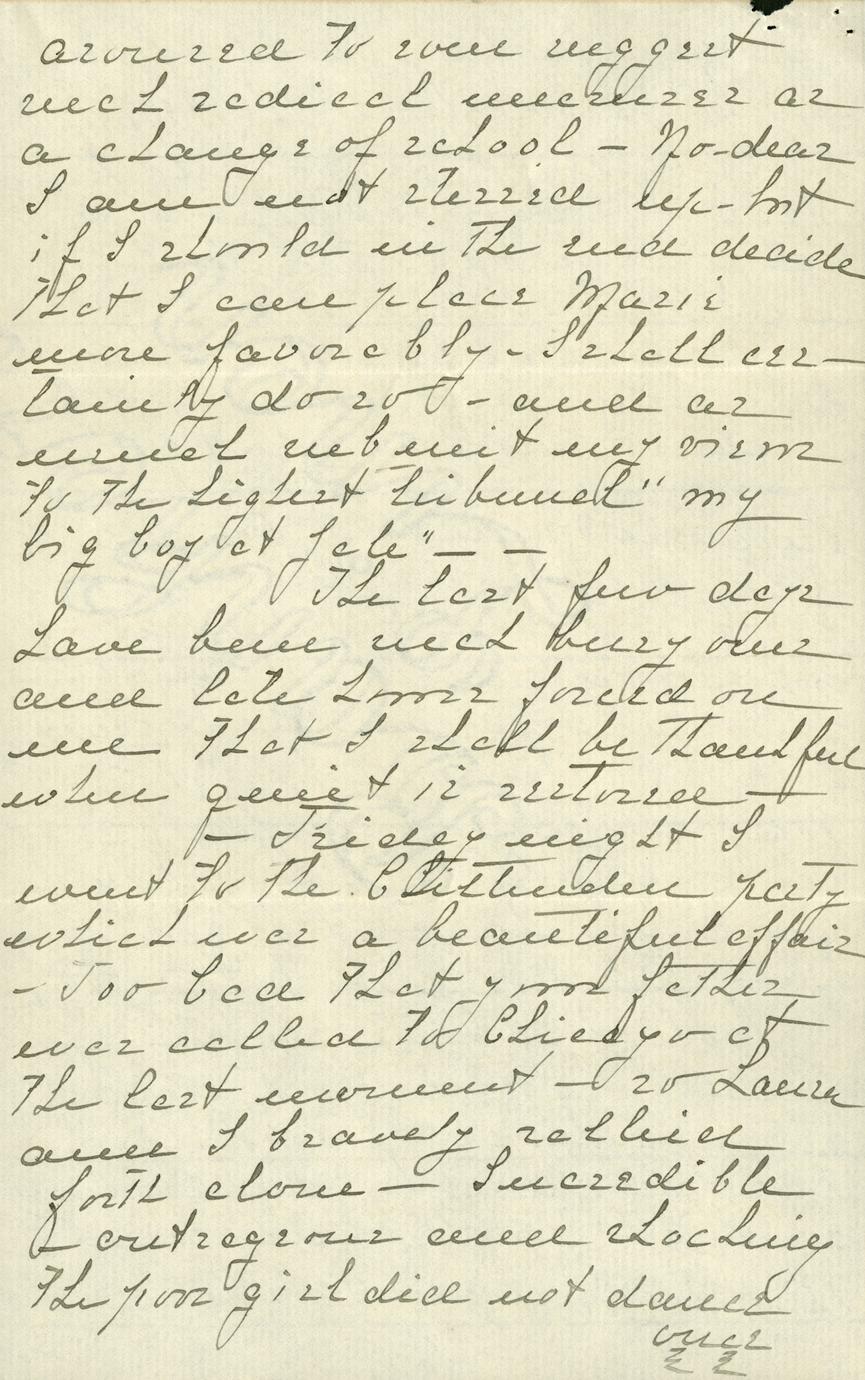 aroused to soon suggest
such radical measures as
a change of school - No - dear
I am not stirred up - but
if I should in the end decide
that I can place Marie
more favorably - I shall cer-
tainly do so - and as
usual submit my views
to the highest tribunal "my
big boy at Yale" - -
The last few days
have been such busy ones
and late hours forced on
me that I shall be thankful
when quiet is restored -
- Friday night I
went to the Chittenden party
which was a beautiful affair
- Too bad that your father
was called to Chicago at
the last moment - so Laura
and I bravely sallied
forth alone - Incredible
- outrageous and shocking
the poor girl did not dance
once